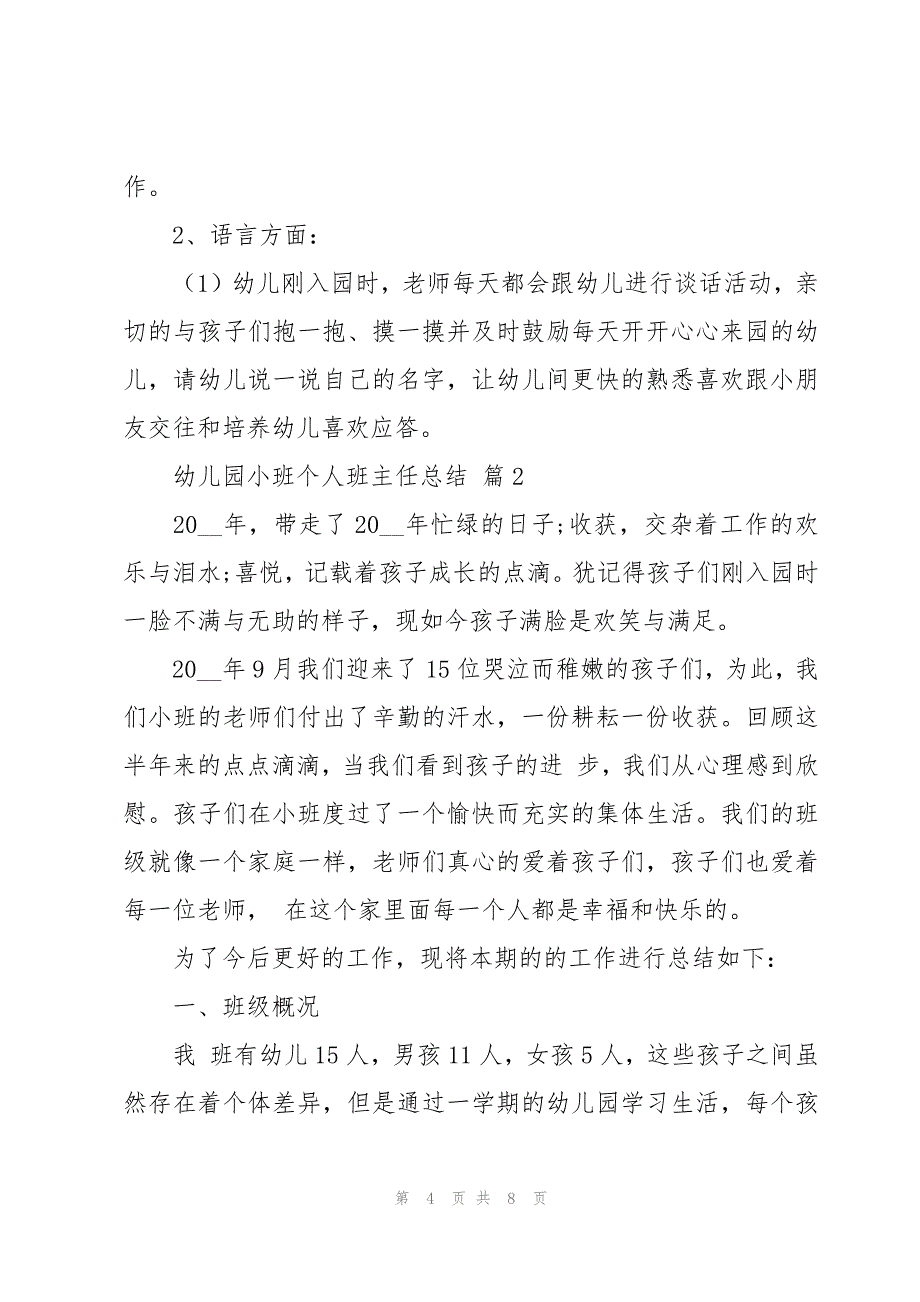 作。
2、语言方面：
（1）幼儿刚入园时，老师每天都会跟幼儿进行谈话活动，亲
切的与孩子们抱一抱、摸一摸并及时鼓励每天开开心心来园的幼
儿，请幼儿说一说自己的名字，让幼儿间更快的熟悉喜欢跟小朋
友交往和培养幼儿喜欢应答。
幼儿园小班个人班主任总结 篇2
20__年，带走了20__年忙绿的日子;收获，交杂着工作的欢
乐与泪水;喜悦，记载着孩子成长的点滴。犹记得孩子们刚入园时
一脸不满与无助的样子，现如今孩子满脸是欢笑与满足。
20__年9月我们迎来了15位哭泣而稚嫩的孩子们，为此，我
们小班的老师们付出了辛勤的汗水，一份耕耘一份收获。回顾这
半年来的点点滴滴，当我们看到孩子的进 步，我们从心理感到欣
慰。孩子们在小班度过了一个愉快而充实的集体生活。我们的班
级就像一个家庭一样，老师们真心的爱着孩子们，孩子们也爱着
每一位老师， 在这个家里面每一个人都是幸福和快乐的。
为了今后更好的工作，现将本期的的工作进行总结如下：
一、班级概况
我 班有幼儿15人，男孩11人，女孩5人，这些孩子之间虽
然存在着个体差异，但是通过一学期的幼儿园学习生活，每个孩
第 4 页 共 8 页